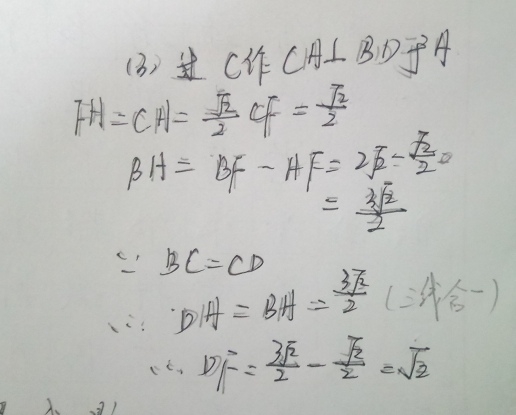 (3) 过 C作 CH⊥BD于H
FH=CH=√2/2 CF=√2/2
BH=BF-HF=2√2-√2/2=
=3√2/2
∵ BC=CD
∴ DH=BH=3√2/2 (三线合一)
∴ DF=3√2/2-√2/2=√2